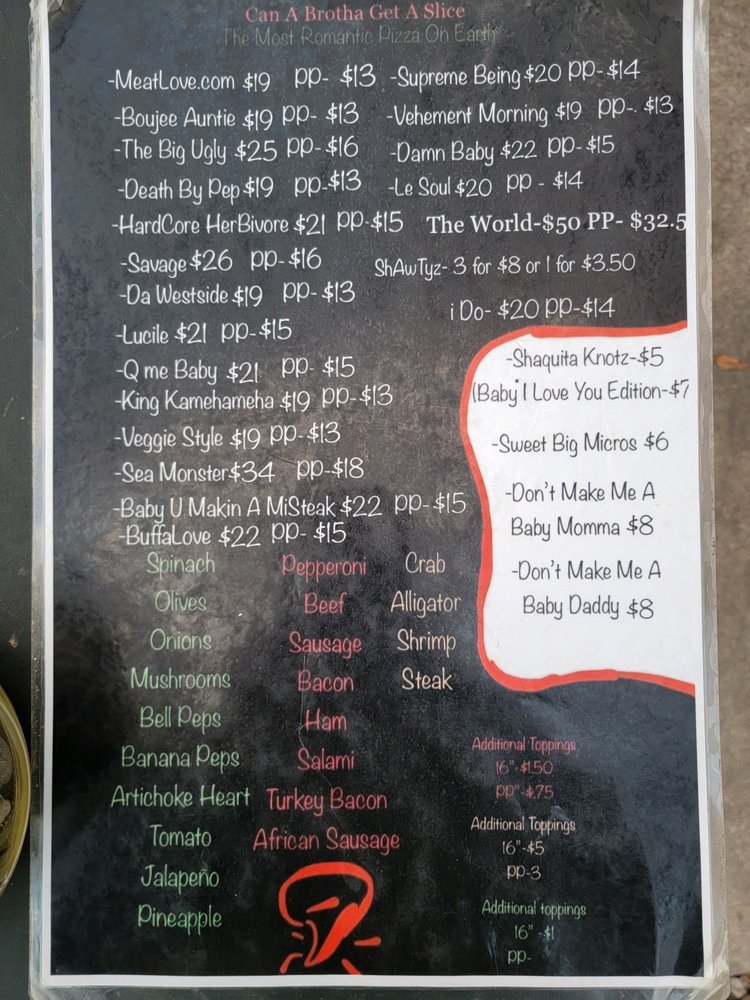 Can A Brotha Get A Slice
The Most Romantic Pizza On Earth
-MeatLove.com $19 PP- $13
-Boujee Auntie $19 PP- $13
-The Big Ugly $25 PP- $16
-Death By Pep $19 PP-$13
-HardCore HerBivore $21 PP-$15
-Savage $26 PP-$16
-Da Westside $19 PP-$13
-Lucile $21 PP-$15
-Q me Baby $21 PP- $15
-King Kamehameha $19 PP-$13
-Veggie Style $19 PP-$13
-Sea Monster $34 PP-$18
-Baby U Makin A MiSteak $22 PP-$15
-BuffaLove $22 PP- $15
-Supreme Being $20 PP-$14
-Vehement Morning $19 PP-. $13
-Damn Baby $22 PP-$15
-Le Soul $20 PP - $14
The World-$50 PP- $32.5
ShAwTyz- 3 for $8 or 1 for $3.50
i Do- $20 PP-$14
-Shaquita Knotz-$5
(Baby I Love You Edition-$7
-Sweet Big Micros $6
-Don't Make Me A
Baby Momma $8
-Don't Make Me A
Baby Daddy $8
Spinach
Olives
Onions
Mushrooms
Bell Peps
Banana Peps
Artichoke Heart
Tomato
Jalapeño
Pineapple
Pepperoni
Beef
Sausage
Bacon
Ham
Salami
Turkey Bacon
African Sausage
Crab
Alligator
Shrimp
Steak
Additional Toppings
16"-$1.50
PP"-$.75
Additional Toppings
16"-$5
PP-3
Additional toppings
16" -$1
PP-